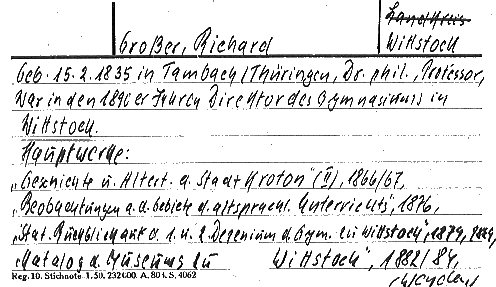 Landkreis
Großer, Richard Wittstock
Geb. 15.2.1835 in Tambach/Thüringen, Dr. phil., Professor,
War in den 1890er Jahren Direktor des Gymnasiums in
Wittstock.
Hauptwerke:
„Geschichte u. Altert. d. Stadt Kroton" (II), 1866/67,
„Beobachtungen a. d. Gebiete d. altsprachl. Unterrichts", 1876,
„Stat. Rückblick auf d. 1. u. 2. Dezenium d. Gym. zu Wittstock", 1879,
Katalog d. Museums zu Wittstock", 1882/84,
Reg. 10. Stichnote 1. 50. 232000. A. 801. S. 4062